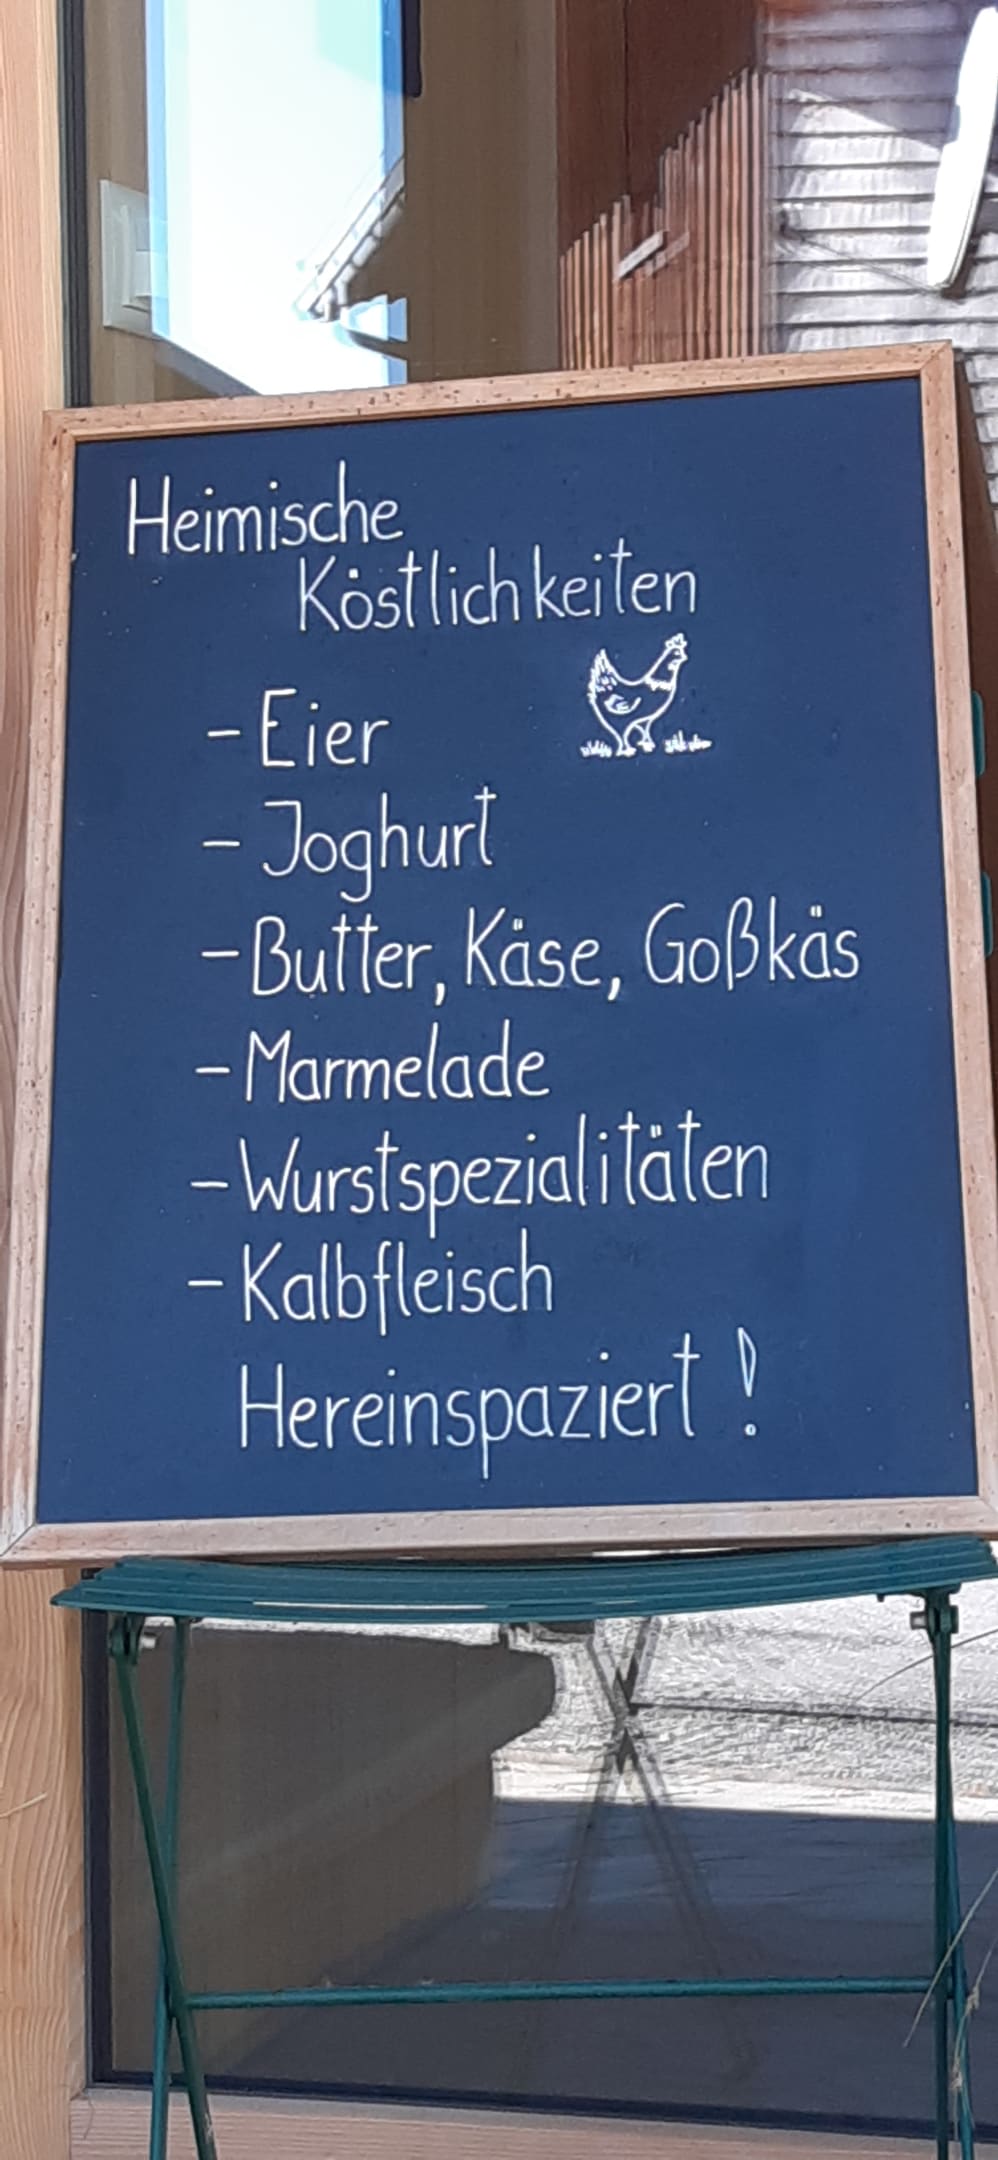 Heimische
Köstlichkeiten
- Eier
- Joghurt
- Butter, Käse, Goßkäs
- Marmelade
- Wurstspezialitäten
- Kalbfleisch
Hereinspaziert !